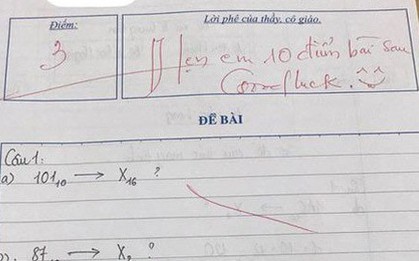 Điểm:
Lời phê của thầy, cô giáo.
3
Hẹn em 10 điểm bài sau
Goodluck. ^^
ĐỀ BÀI
Câu 1:
a) 101₁₀ → X₁₆ ?
87₁₀ → X₂ ?